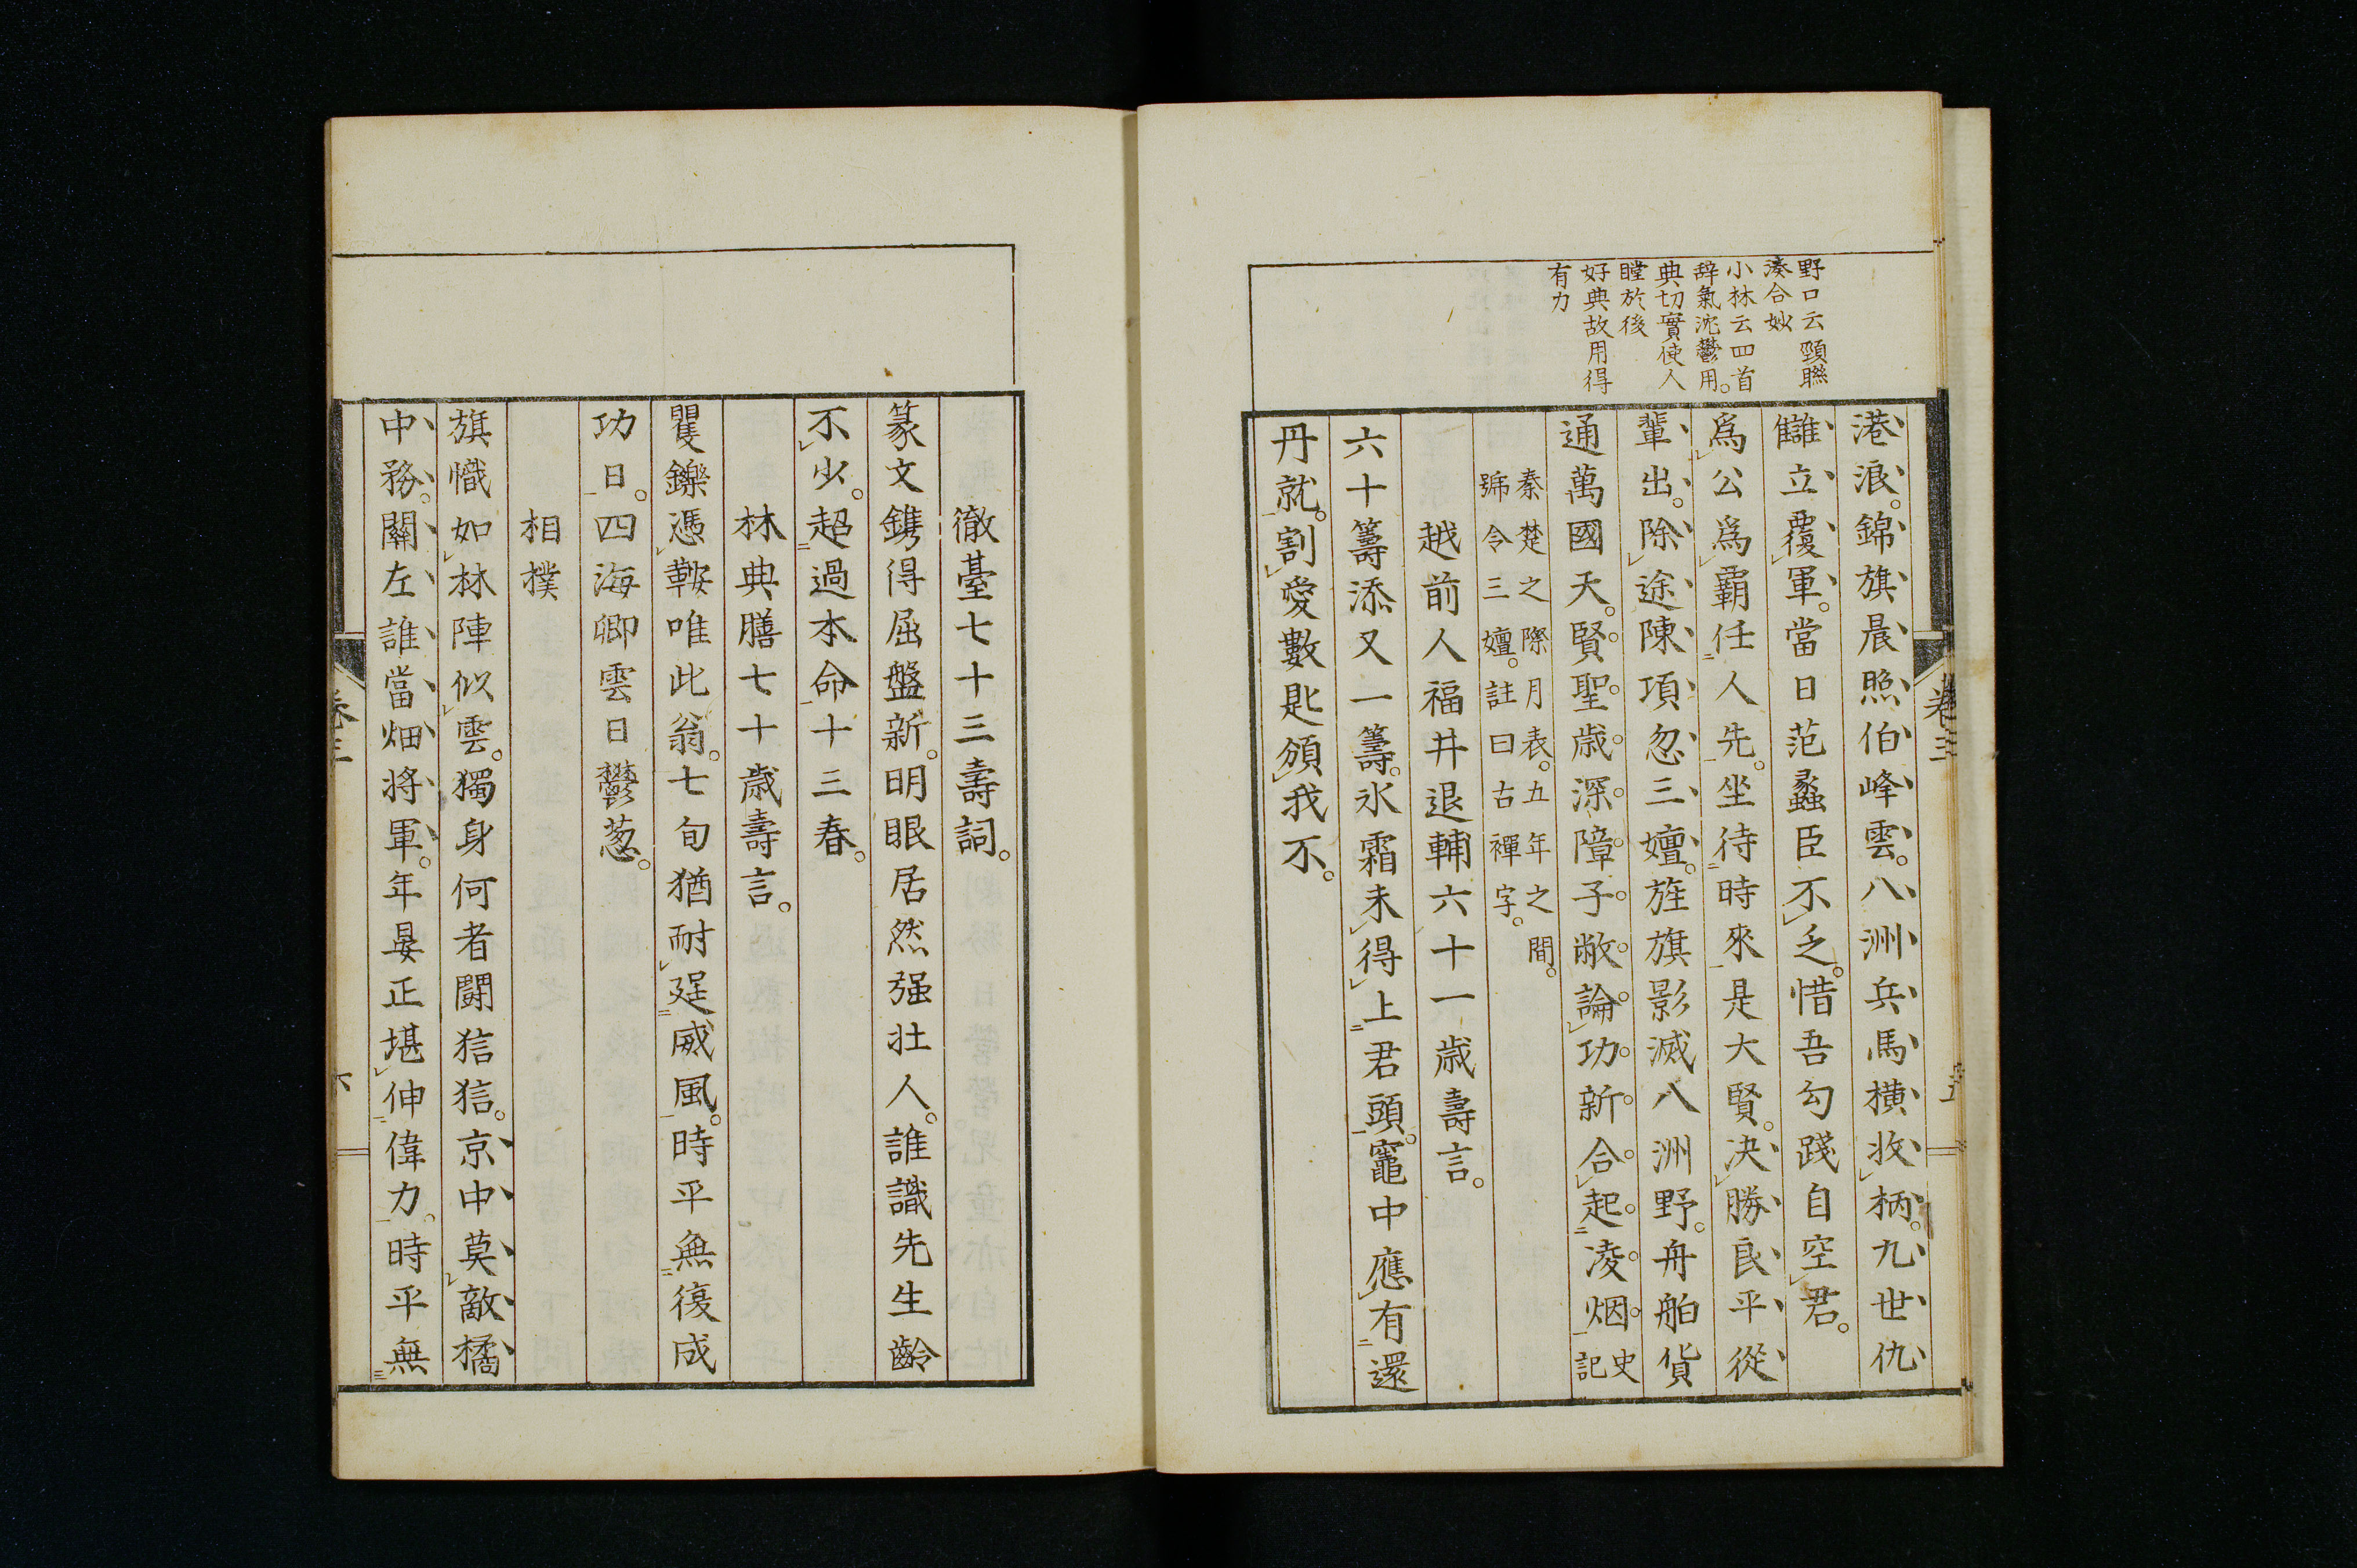 野口云頸聯
湊合妙
小林云四首
辞氣沈鬱用。
典切實使人
瞠於後
好典故用得
有力
港浪。錦旗晨照伯峰雲。八洲兵馬横收柄。九世仇
讎立覆軍。當日范蠡臣不乏。惜吾勾踐自空君。
爲公爲霸任人先。坐待時來是大賢。决勝良平從
輩出。除途陳項忽三嬗。旌旗影滅八洲野。舟舶貨
通萬國天。賢聖歳深障子敞。論功新合起凌烟。史
記
秦楚之際月表。五年之間。
號令三嬗。註曰古禪字。
越前人福井退輔六十一歳壽言。
六十籌添又一籌。氷霜未得上君頭。竈中應有還
丹就。割愛數匙頒我不。
卷三
五
徹臺七十三壽詞。
篆文鐫得屈盤新。明眼居然强壯人。誰識先生齡
不少。超過本命十三春。
林典膳七十歳壽言。
矍鑠憑鞍唯此翁。七旬猶耐逞威風。時平無復成
功日。四海卿雲日鬱葱。
相撲
旗幟如林陣似雲。獨身何者鬪狺狺。京中莫敵橘
中務。關左誰當畑将軍。年晏正堪伸偉力。時平無
卷三
六